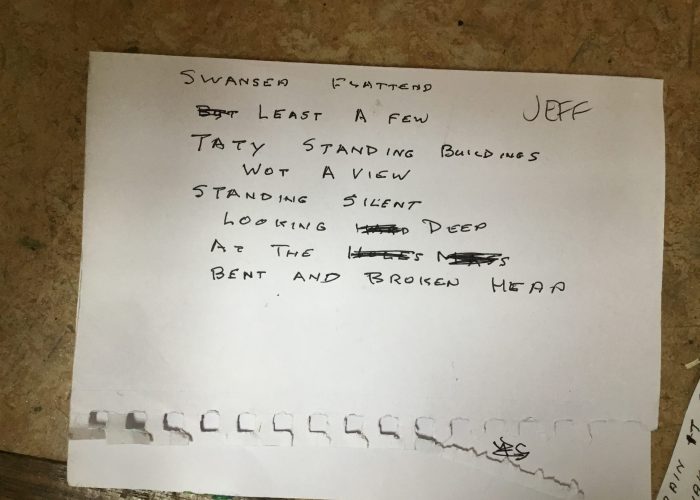 SWANSEA FLATTEND
JEFF
LEAST A FEW
TATY STANDING BUILDINGS
WOT A VIEW
STANDING SILENT
LOOKING DEEP
AT THE
BENT AND BROKEN HEAP